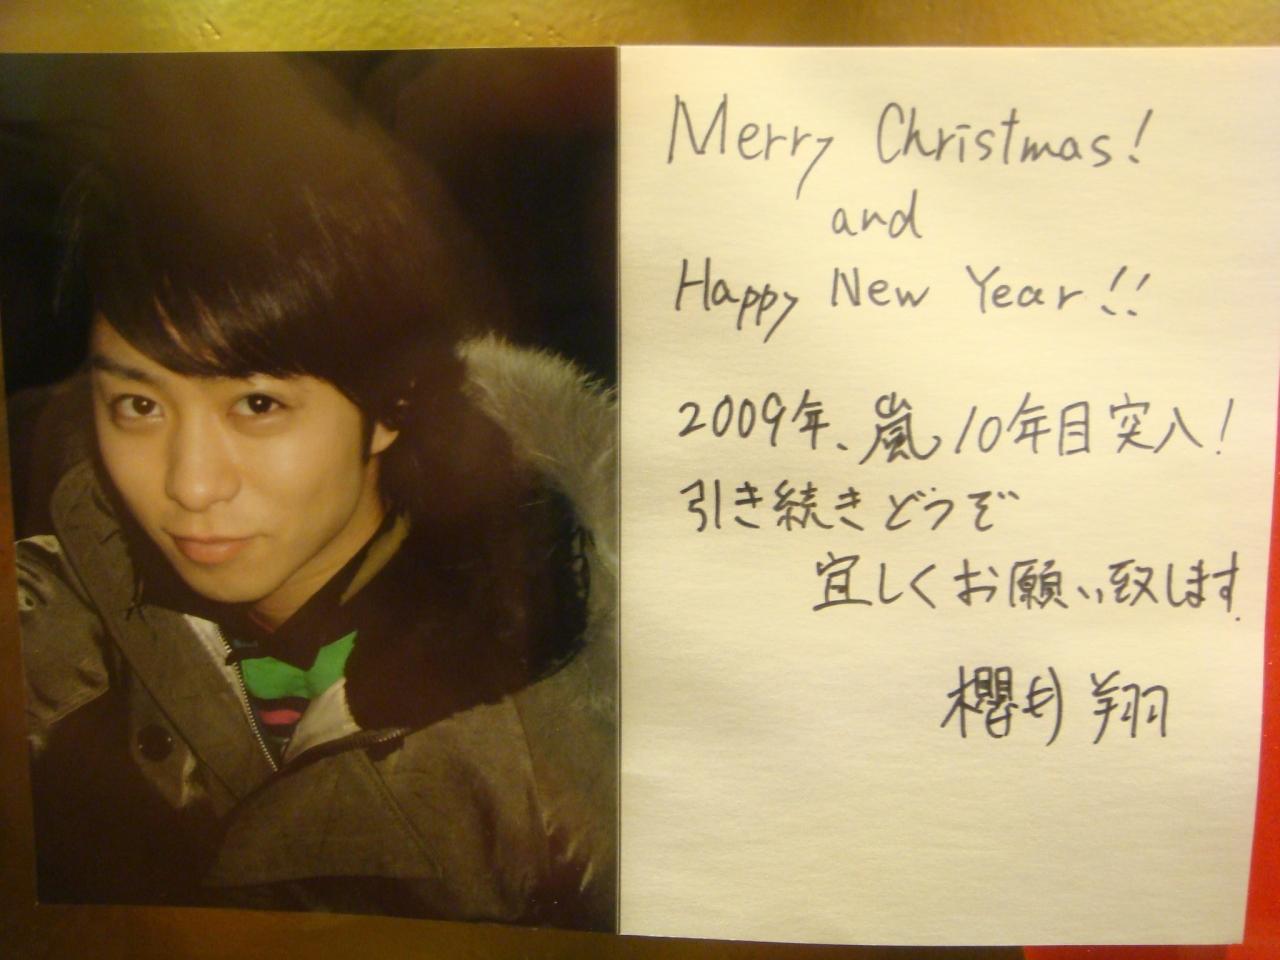 Merry Christmas!
and
Happy New Year!!
2009年、嵐10年目突入!
引き続きどうぞ
宜しくお願い致します.
櫻井 翔